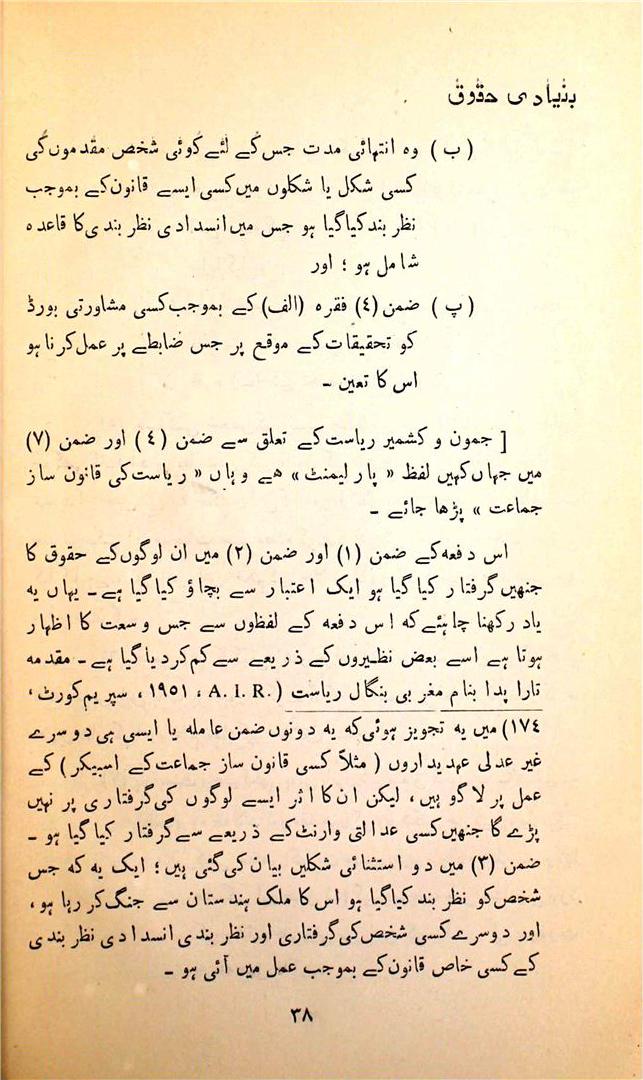 بنیادی حقوق
(ب) وہ انتہائی مدت جس کے لئے کوئی شخص مقدموں کی
کسی شکل یا شکلوں میں کسی ایسے قانون کے بموجب
نظر بند کیا گیا ہو جس میں انسدادی نظر بندی کا قاعدہ
شامل ہو ؛ اور
(پ) ضمن (٤) فقرہ (الف) کے بموجب کسی مشاورتی بورڈ
کو تحقیقات کے موقع پر جس ضابطے پر عمل کرنا ہو
اس کا تعین ۔
[ جموں و کشمیر ریاست کے تعلق سے ضمن (٤) اور ضمن (۷)
میں جہاں کہیں لفظ « پارلیمنٹ » ہے وہاں « ریاست کی قانون ساز
جماعت » پڑھا جائے ۔
اس دفعہ کے ضمن (۱) اور ضمن (۲) میں ان لوگوں کے حقوق کا
جنھیں گرفتار کیا گیا ہو ایک اعتبار سے بچاؤ کیا گیا ہے ۔ یہاں یہ
یاد رکھنا چاہئے کہ اس دفعہ کے لفظوں سے جس وسعت کا اظہار
ہوتا ہے اسے بعض نظیروں کے ذریعے سے کم کر دیا گیا ہے ۔ مقدمہ
تارا پدا بنام مغربی بنگال ریاست (.A. I. R ، ۱۹۵۱ ، سپریم کورٹ ،
۱۷٤) میں یہ تجویز ہوئی کہ یہ دونوں ضمن عاملہ یا ایسی ہی دوسرے
غیر عدلی عہدیداروں ( مثلاً کسی قانون ساز جماعت کے اسپیکر ) کے
عمل پر لاگو ہیں ، لیکن ان کا اثر ایسے لوگوں کی گرفتاری پر نہیں
پڑے گا جنھیں کسی عدالتی وارنٹ کے ذریعے سے گرفتار کیا گیا ہو ۔
ضمن (۳) میں دو استثنائی شکلیں بیان کی گئی ہیں ؛ ایک یہ کہ جس
شخص کو نظر بند کیا گیا ہو اس کا ملک ہندستان سے جنگ کر رہا ہو ،
اور دوسرے کسی شخص کی گرفتاری اور نظر بندی انسدادی نظر بندی
کے کسی خاص قانون کے بموجب عمل میں آئی ہو ۔
۳۸